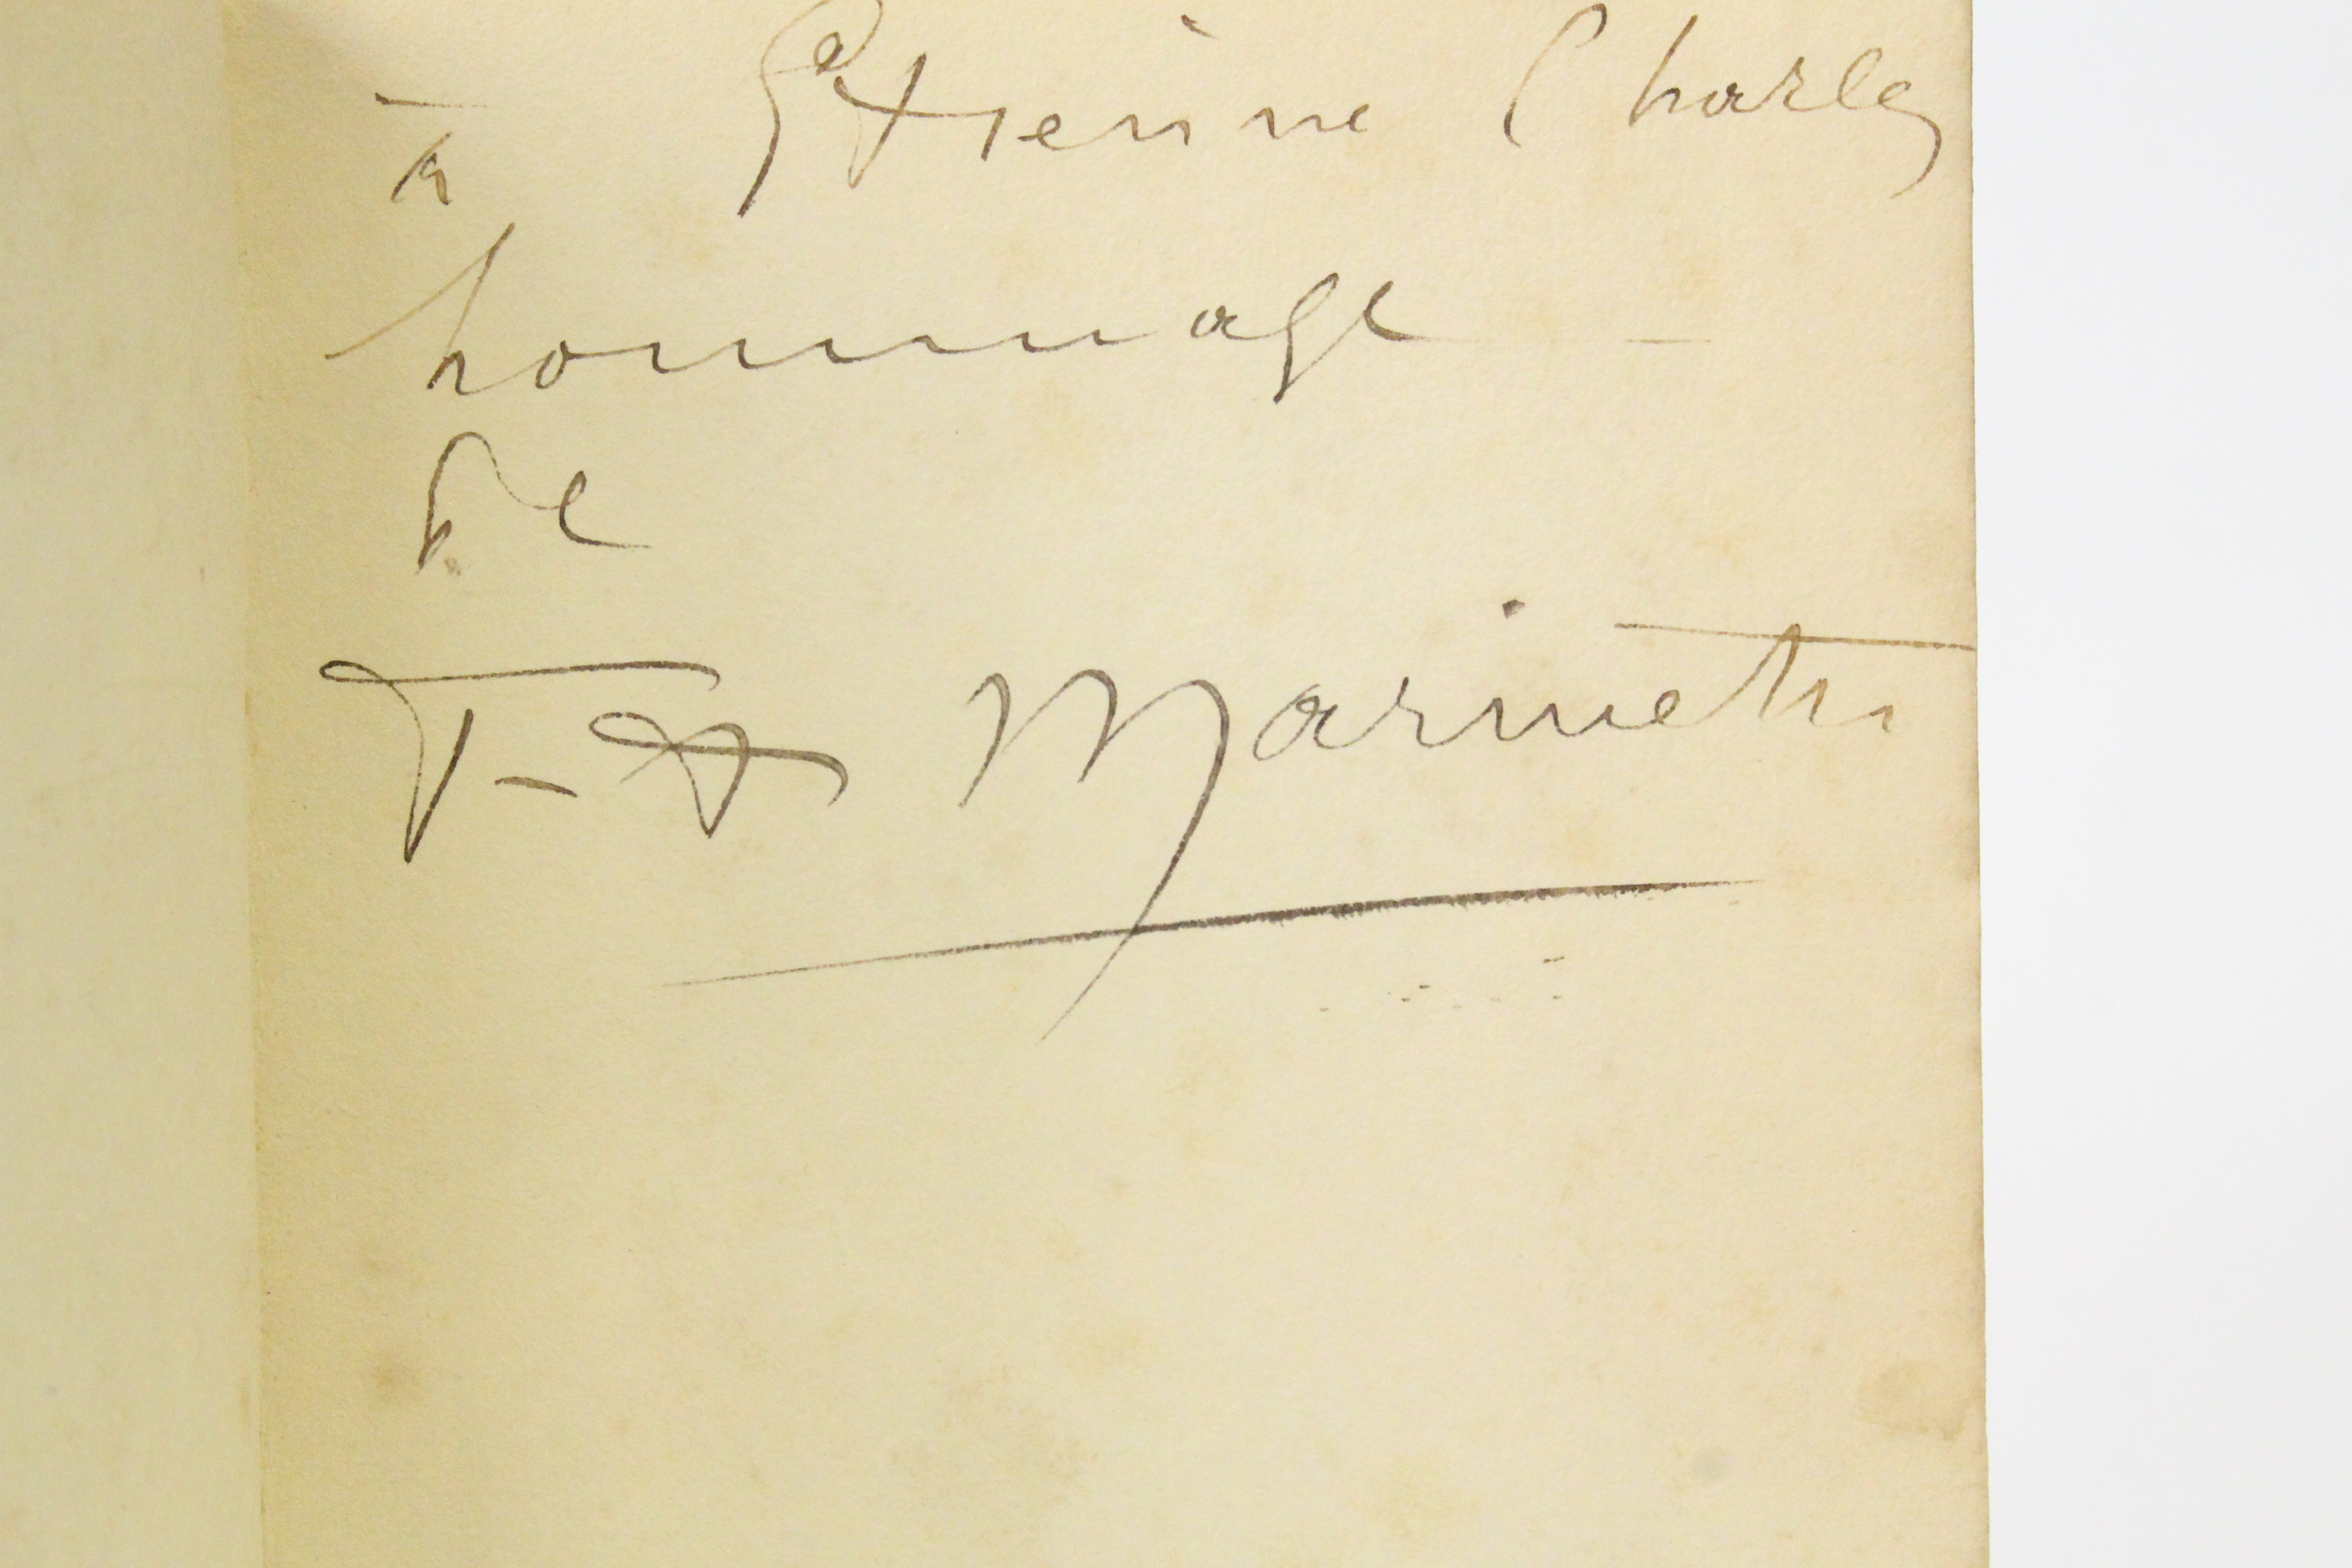 à Etienne Charles
hommage
de
F-T Marinetti